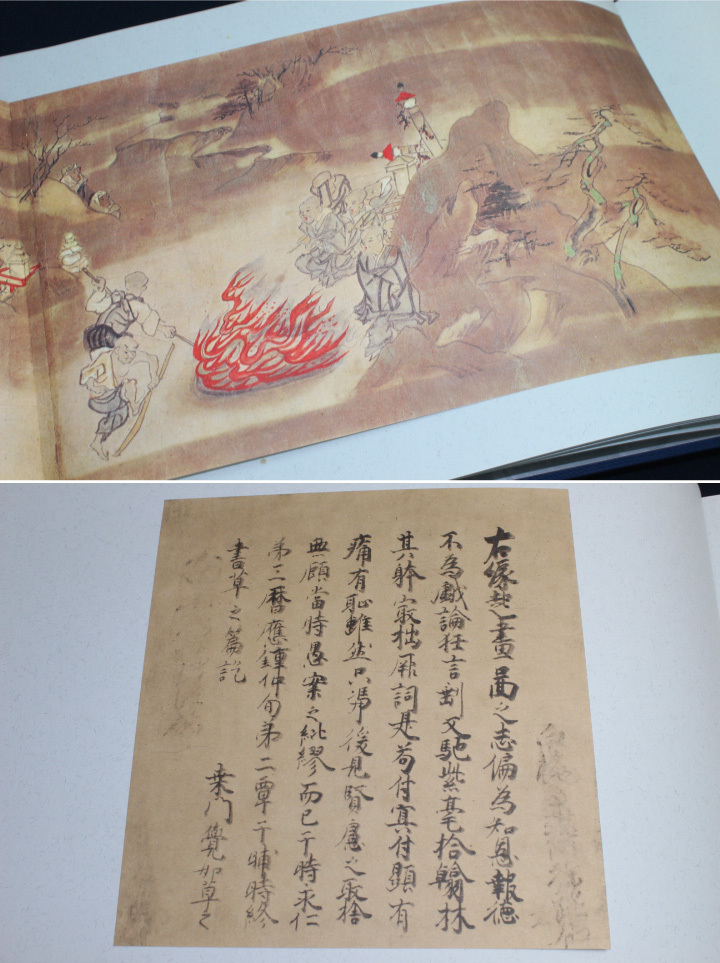 右縁起畫圖之志偏為知恩報徳
不為戯論狂言剰又馳紫毫拾翰林
其躰寂拙厥詞是苟付冥付顕有
痛有恥雖然只馮後見賢慮之取捨
無顧當時愚案之紕繆而已于時永仁
第三暦應鍾仲旬第二覃于晡時終
書草之篇訖
桑門覺如草之